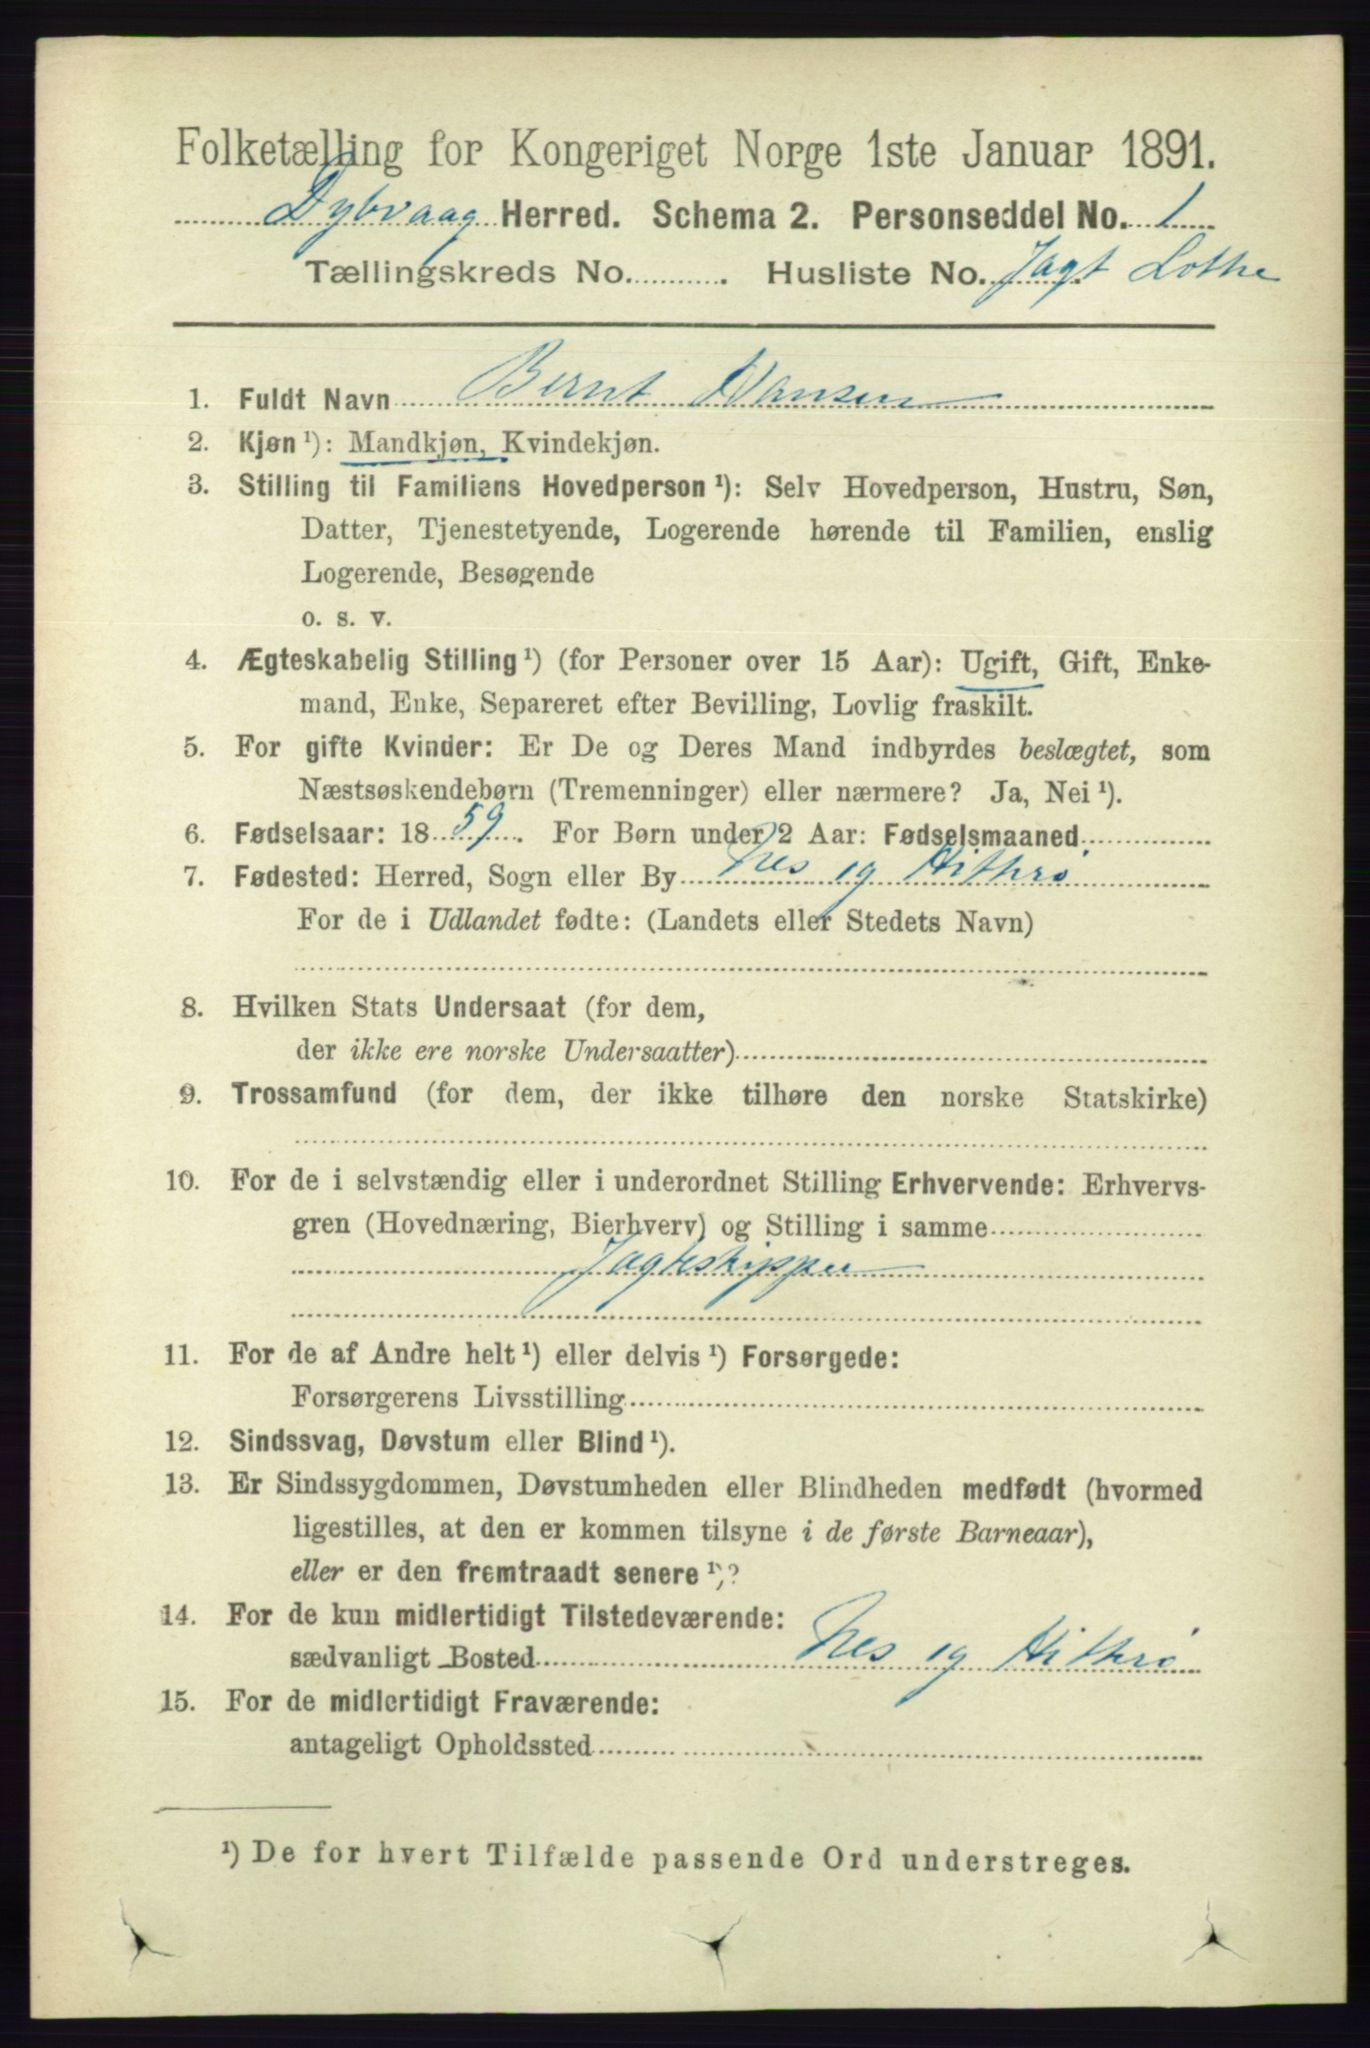 Folketælling for Kongeriget Norge 1ste Januar 1891.
Dybvaag Herred. Schema 2. Personseddel No. 1
Tællingskreds No. . Husliste No. Jagt Lothe
1. Fuldt Navn Bernt Hansen
2. Kjøn ¹): Mandkjøn, Kvindekjøn.
3. Stilling til Familiens Hovedperson ¹): Selv Hovedperson, Hustru, Søn,
Datter, Tjenestetyende, Logerende hørende til Familien, enslig
Logerende, Besøgende
o. s. v.
4. Ægteskabelig Stilling ¹) (for Personer over 15 Aar): Ugift, Gift, Enke-
mand, Enke, Separeret efter Bevilling, Lovlig fraskilt.
5. For gifte Kvinder: Er De og Deres Mand indbyrdes beslægtet, som
Næstsøskendebørn (Tremenninger) eller nærmere? Ja, Nei ¹).
6. Fødselsaar: 18 59. For Børn under 2 Aar: Fødselsmaaned
7. Fødested: Herred, Sogn eller By Nes og Hitherø
For de i Udlandet fødte: (Landets eller Stedets Navn)
8. Hvilken Stats Undersaat (for dem,
der ikke ere norske Undersaatter)
9. Trossamfund (for dem, der ikke tilhøre den norske Statskirke)
10. For de i selvstændig eller i underordnet Stilling Erhvervende: Erhvervs-
gren (Hovednæring, Bierhverv) og Stilling i samme
Jagteskipper
11. For de af Andre helt ¹) eller delvis ¹) Forsørgede:
Forsørgerens Livsstilling
12. Sindssvag, Døvstum eller Blind ¹).
13. Er Sindssygdommen, Døvstumheden eller Blindheden medfødt (hvormed
ligestilles, at den er kommen tilsyne i de første Barneaar),
eller er den fremtraadt senere ¹)?
14. For de kun midlertidigt Tilstedeværende:
sædvanligt Bosted Nes og Hitherø
15. For de midlertidigt Fraværende:
antageligt Opholdssted
¹) De for hvert Tilfælde passende Ord understreges.